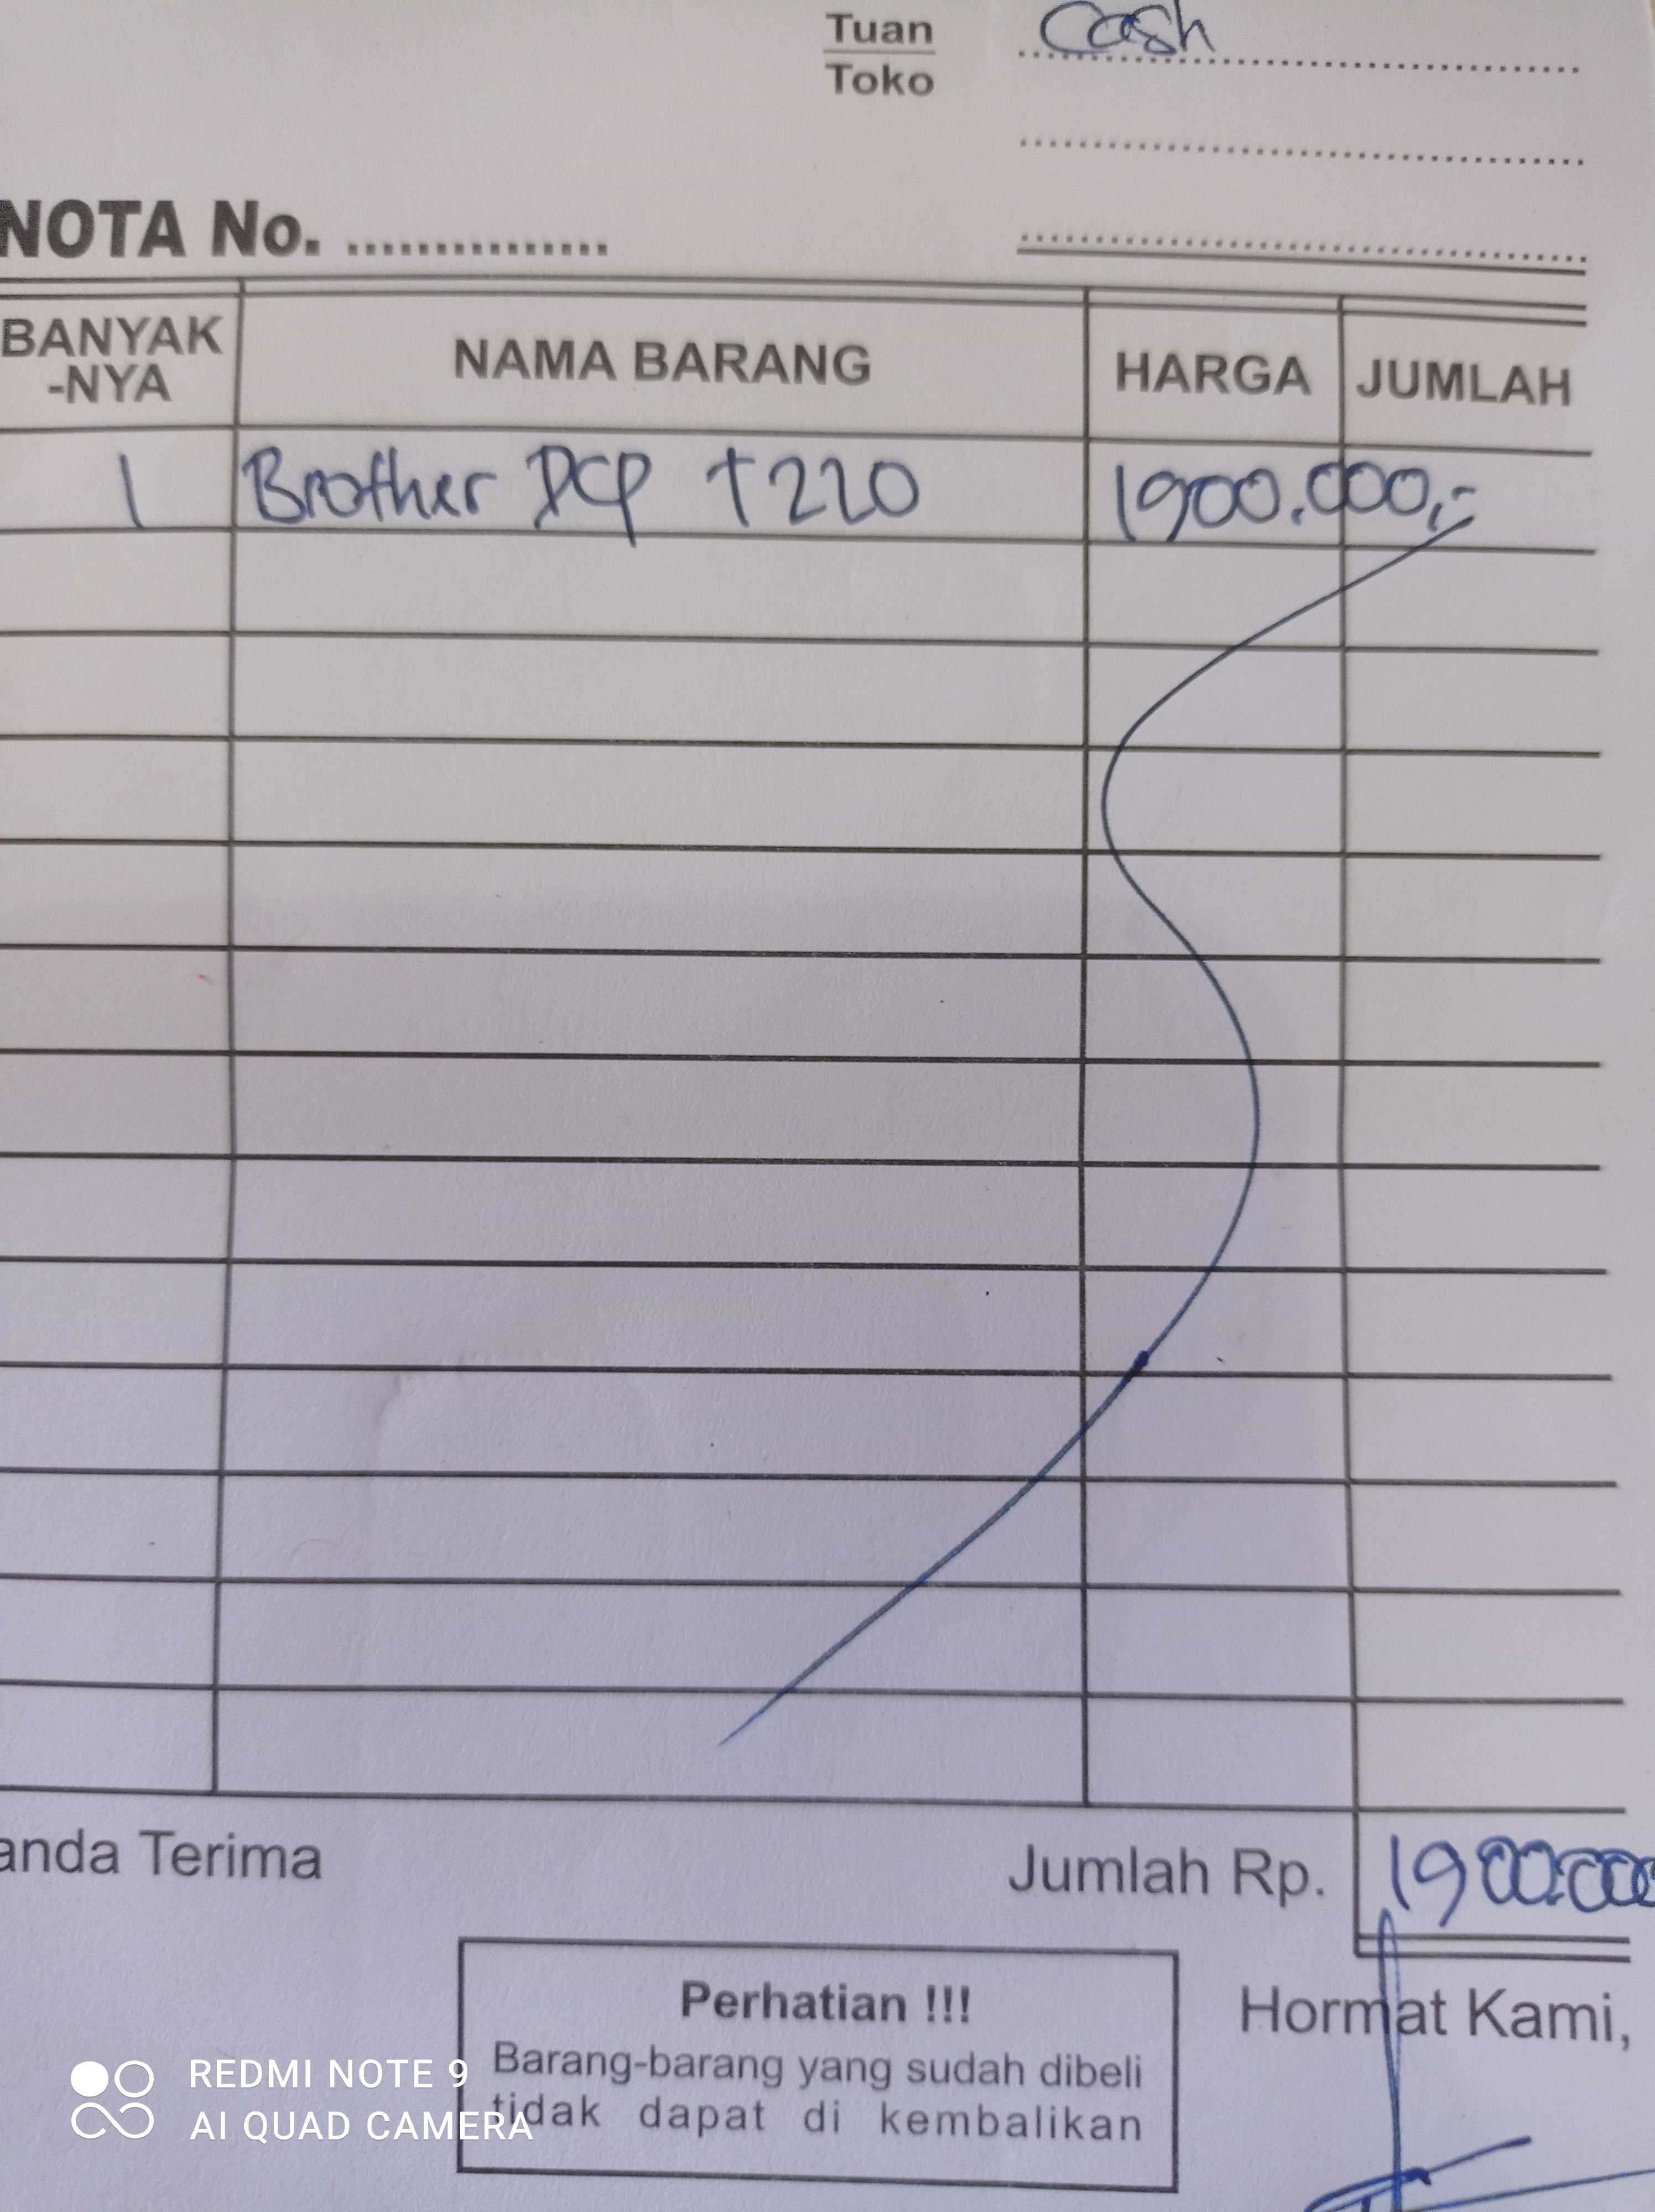 Tuan Cash
Toko
NOTA No. ...............
BANYAK
-NYA
NAMA BARANG
HARGA
JUMLAH
1 Brother DCP T220 1900.000,-
anda Terima
Jumlah Rp. 1900.000
Perhatian !!!
Barang-barang yang sudah dibeli
tidak dapat di kembalikan
Hormat Kami,
REDMI NOTE 9
AI QUAD CAMERA